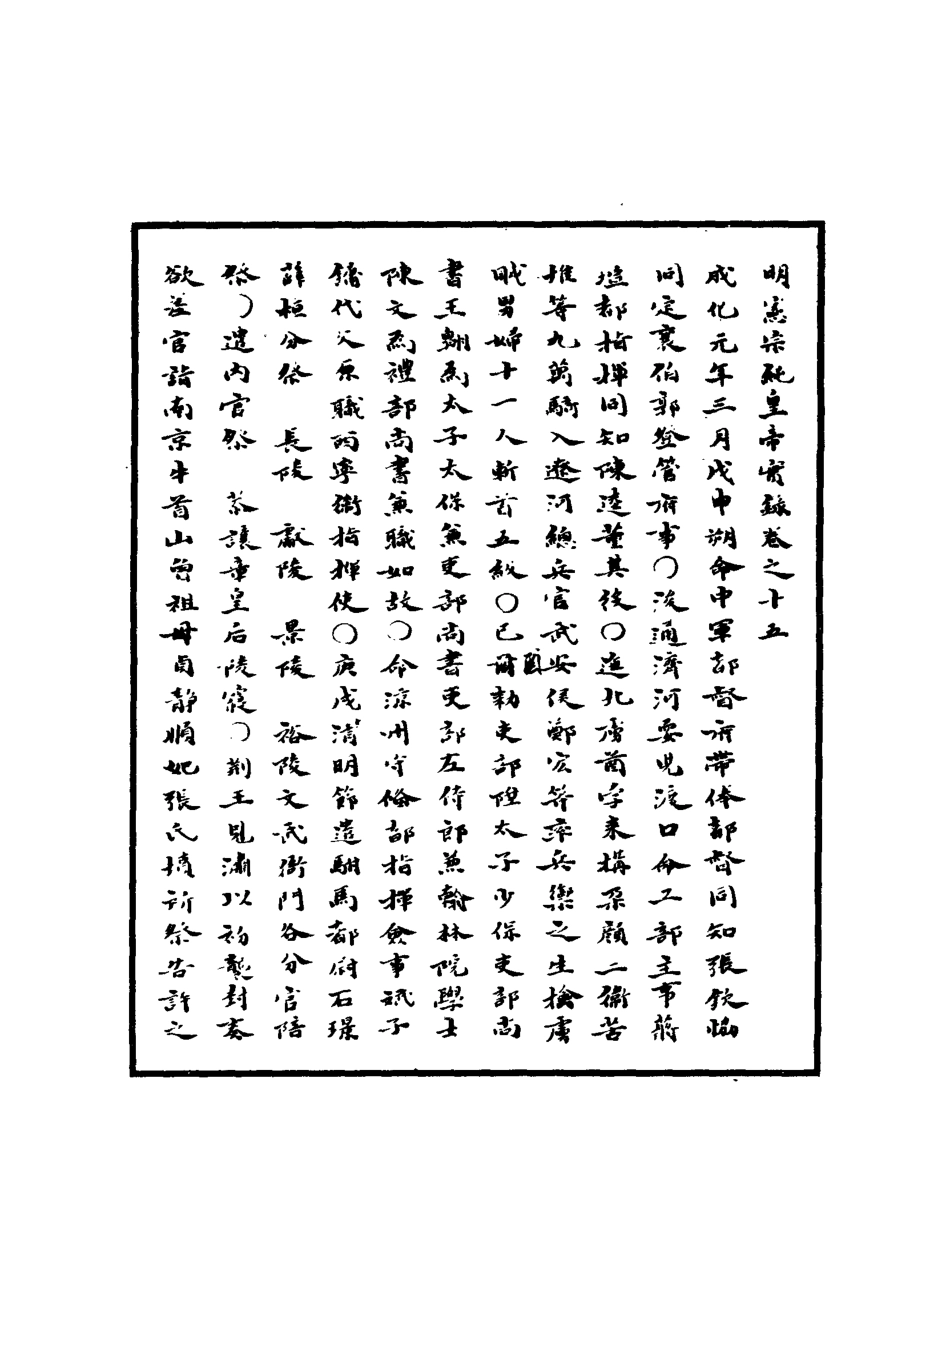 明憲宗純皇帝實錄卷之十五
成化元年三月戊申朔命中軍都督府帶俸都督同知張欽協
同定襄伯郭登管府事〇浚通濟河耍兒渡口命工部主事蔣
瑄都指揮同知陳逵董其役〇迤北虜酋孛來搆朵顏二衛苦
推等九萬騎入遼河總兵官武安侯鄭宏等率兵禦之生擒虜
戝男婦十一人斬首五級〇己酉勑吏部陞太子少保吏部尚
書王翱為太子太保兼吏部尚書吏部左侍郎兼翰林院學士
陳文為禮部尚書兼職如故〇命涼州守俻都指揮僉事 子
鏞代父原職西寧衛指揮使〇庚戌清明節遣駙馬都尉石璟
薛桓分祭 長陵 獻陵 景陵 裕陵文武衙門各分官陪
祭〇遣內官祭 恭讓章皇后陵寢〇荊王見潚以初襲封奏
欲差官詣南京牛首山曾祖母貞靜順妃張氏墳所祭告許之